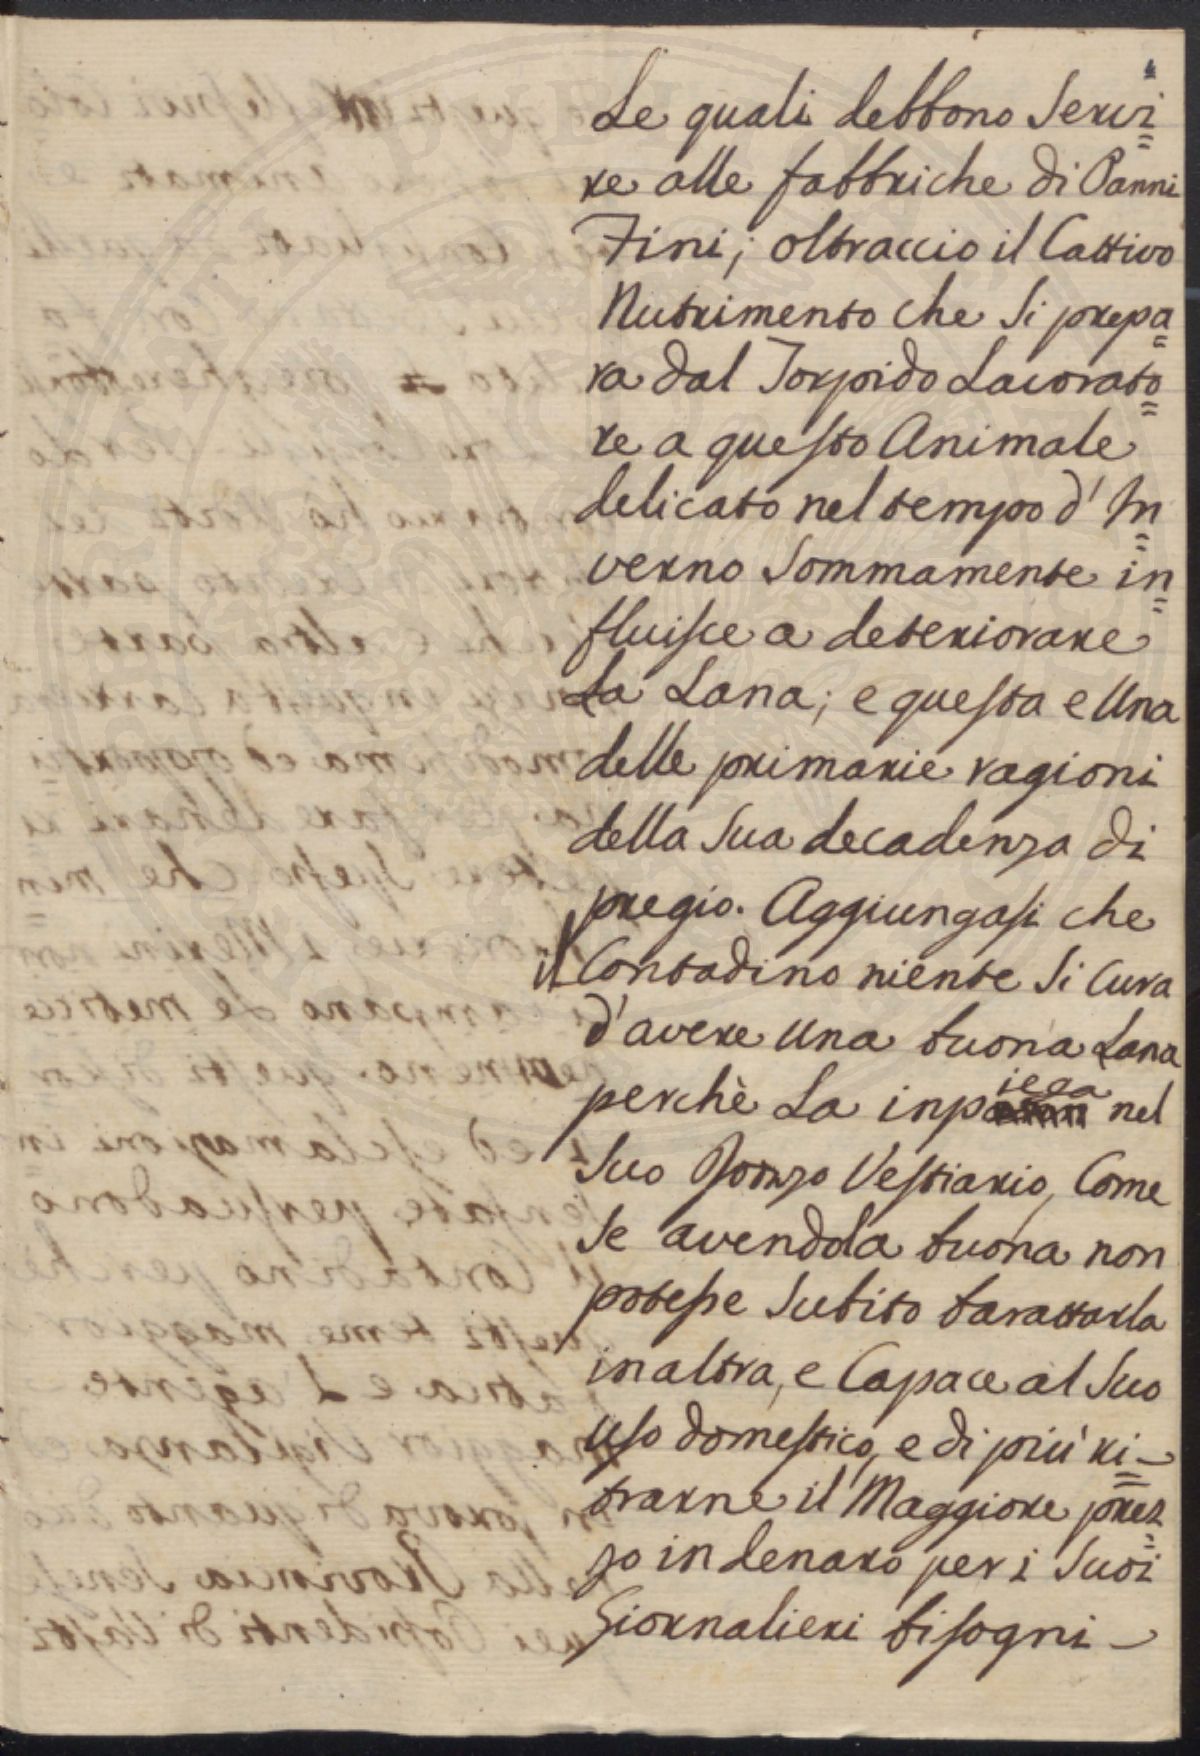 4
Le quali debbono Servi=
re alle fabbriche di Panni
Fini; oltraccio il Cattivo
Nutrimento che Si prepa=
ra dal Torpido Lavorato=
re a questo Animale
delicato nel tempo d' In=
verno Sommamente in=
fluisce a deteriorare
La Lana; e questa e Una
delle primarie ragioni
della Sua decadenza di
pregio. Aggiungasi che
il Contadino niente Si Cura
d'avere Una buona Lana
perchè La inpiega nel
Suo Rozzo Vestiario, Come
Se avendola buona non
potesse Subito barattarla
in altra, e Capace al Suo
uso domestico, e di più ri=
trarne il Maggiore prez=
zo in denaro per i Suoi
Giornalieri bisogni –